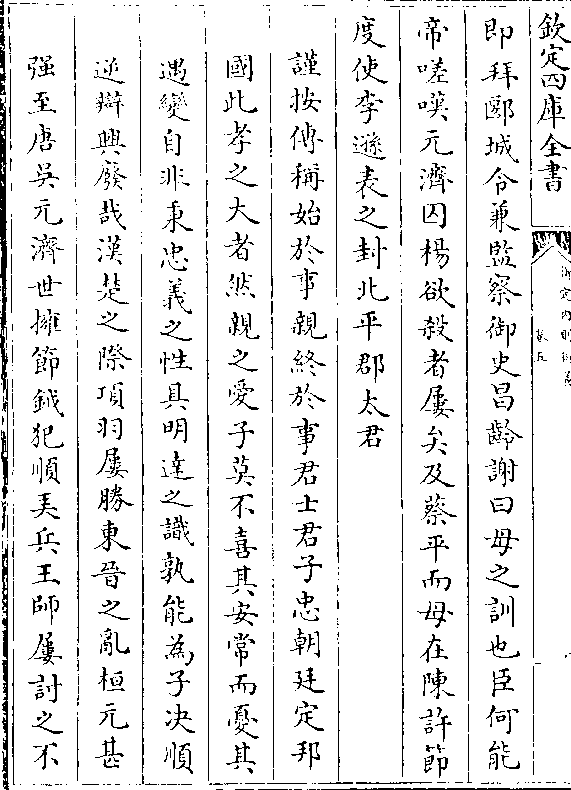 欽定四庫全書
御定内則衍義
卷五
即拜郾城令兼監察御史昌齡謝曰母之訓也臣何能
帝嗟嘆元濟囚楊欲殺者屢矣及蔡平而母在陳許節
度使李遜表之封北平郡太君
謹按傳稱始於事親終於事君士君子忠朝廷定邦
國此孝之大者然親之愛子莫不喜其安常而憂其
遇變自非秉忠義之性具明達之識孰能為子决順
逆辯興廢哉漢楚之際項羽屢勝東晉之亂桓元甚
强至唐吳元濟世擁節鉞犯順弄兵王師屢討之不